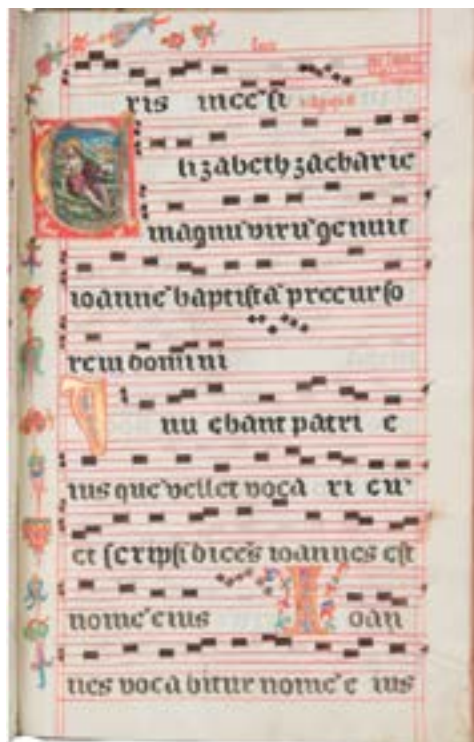 ris incēsi
lizabeth zacharie
magnū virū genuit
ioannē baptistā precurso
rem domini
nu ebant patri e
ius quē vellet voca ri eū
et scripsi dicēs ioannes est
nomē eius Ioan
nes voca bitur nomē e ius